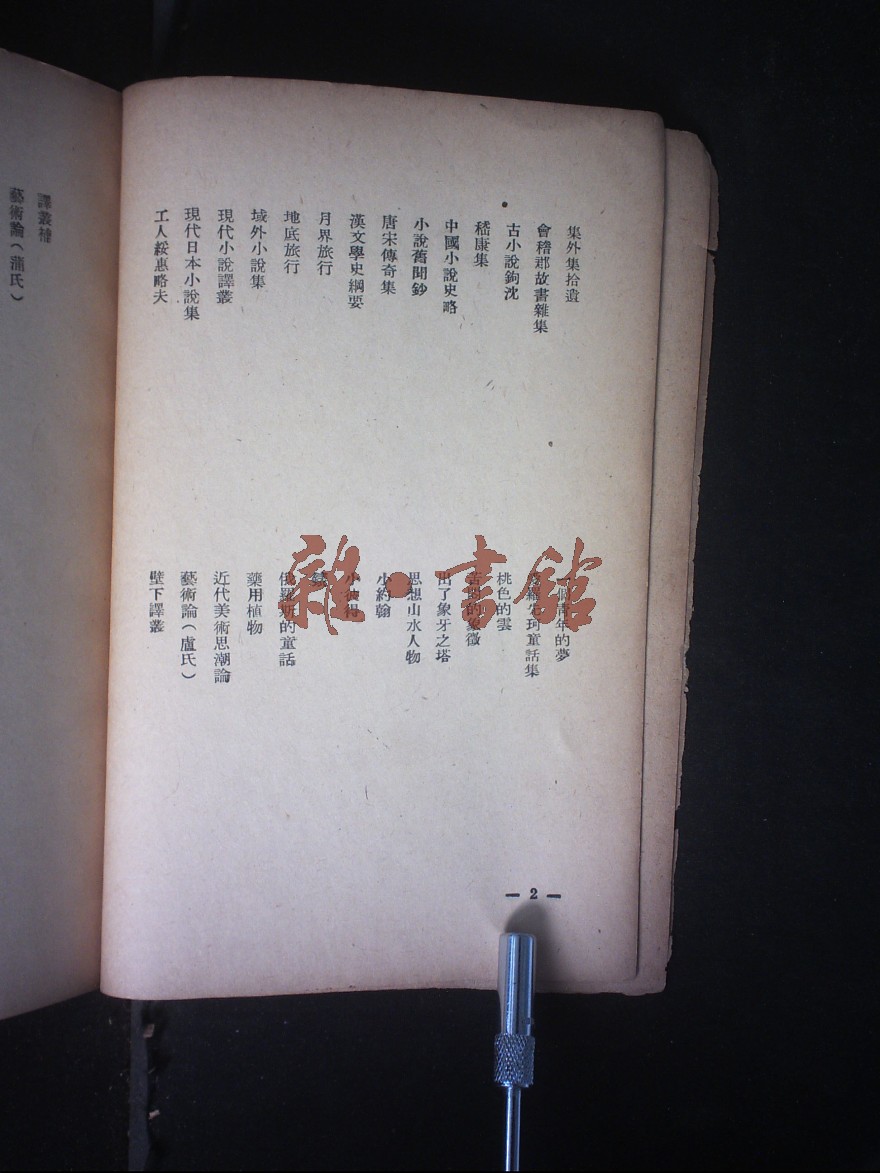 集外集拾遺
會稽郡故書雜集
古小說鉤沈
嵇康集
中國小說史略
小說舊聞鈔
唐宋傳奇集
漢文學史綱要
月界旅行
地底旅行
域外小說集
現代小說譯叢
現代日本小說集
工人綏惠略夫
一個青年的夢
愛羅先珂童話集
桃色的雲
苦悶的象徵
出了象牙之塔
思想山水人物
小約翰
小彼得
錶
俄羅斯的童話
藥用植物
近代美術思潮論
藝術論(盧氏)
壁下譯叢
— 2 —
譯叢補
藝術論(蒲氏)
雜·書館